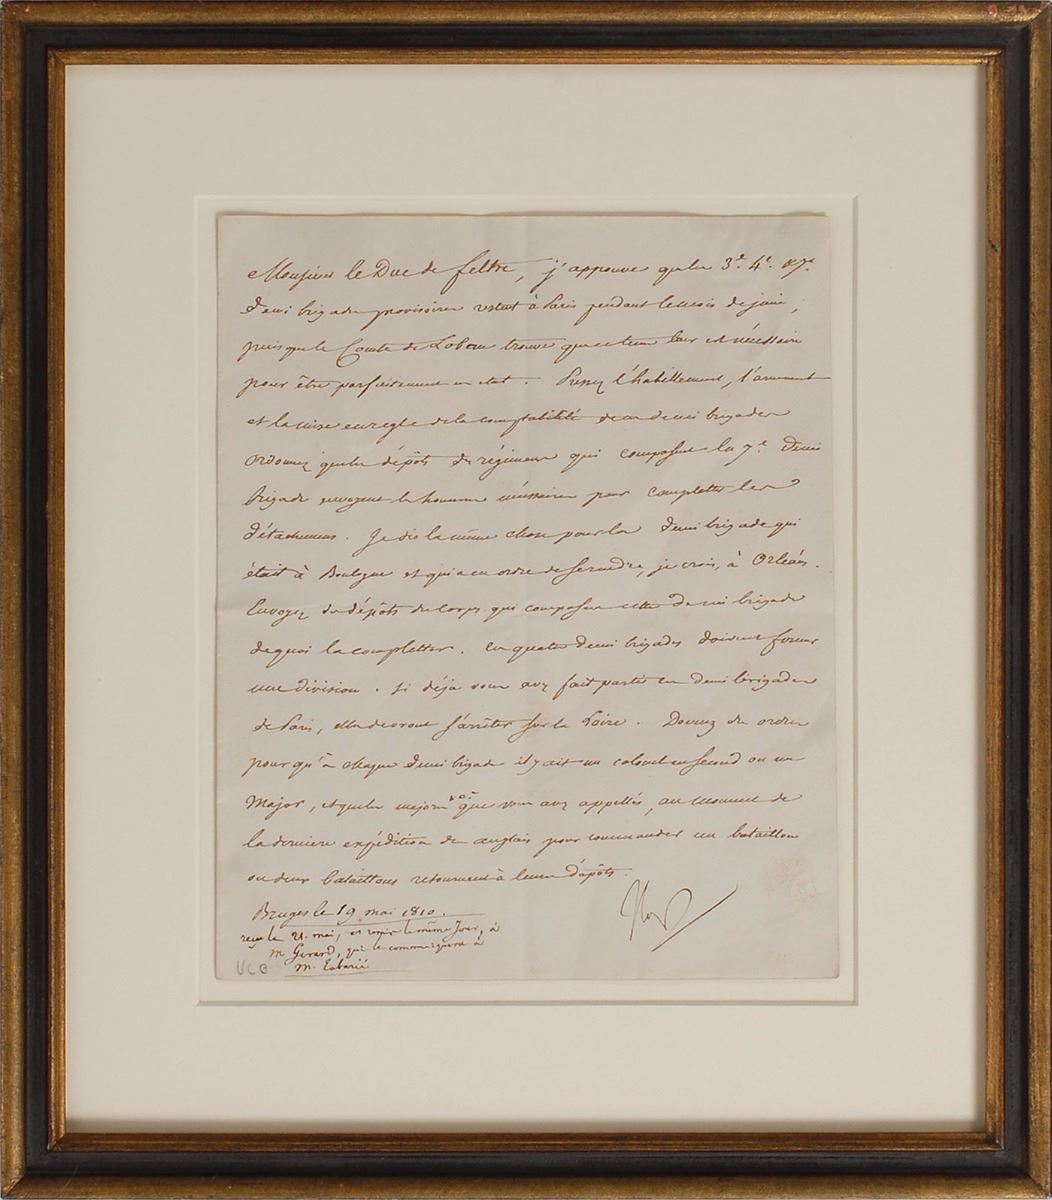 Monsieur le Duc de feltre, j'approuve que les 3e. 4e. et 7e.
demi brigades provisoires restent à Paris pendant le mois de juin,
puisque le Comte de Lobau trouve que ce tems leur est nécessaire
pour être parfaitement en etat. Pressez l'habillement, l'armement
et la mise en regle de la comptabilité de ces demi brigades
ordonnez que les dépôts des régimens qui composent la 7e. demi
brigade envoyent les hommes nécessaires pour completter les
détachemens. Je dis la même chose pour la demi brigade qui
était à Boulogne et qui a eu ordre de se rendre, je crois, à Orléans.
Envoyez des dépôts des corps qui composent cette demi brigade
de quoi la completter. Ces quatre demi brigades doivent former
une division. Si déjà vous avez fait partir ces demi brigades
de Paris, elles devront s'arrêter sur la Loire. Donnez des ordres
pour qu'à chaque demi brigade il y ait un colonel en second ou un
Major, et que les majors que vous avez appellés, au moment de
la derniere expédition des anglais pour commander un bataillon
ou deux bataillons retournent à leurs dépôts.
Bruges le 19 mai 1810.
reçue le 21. mai, et remise le même Jour, à
M. Gerard, qui le communiquera à
M.
UCB